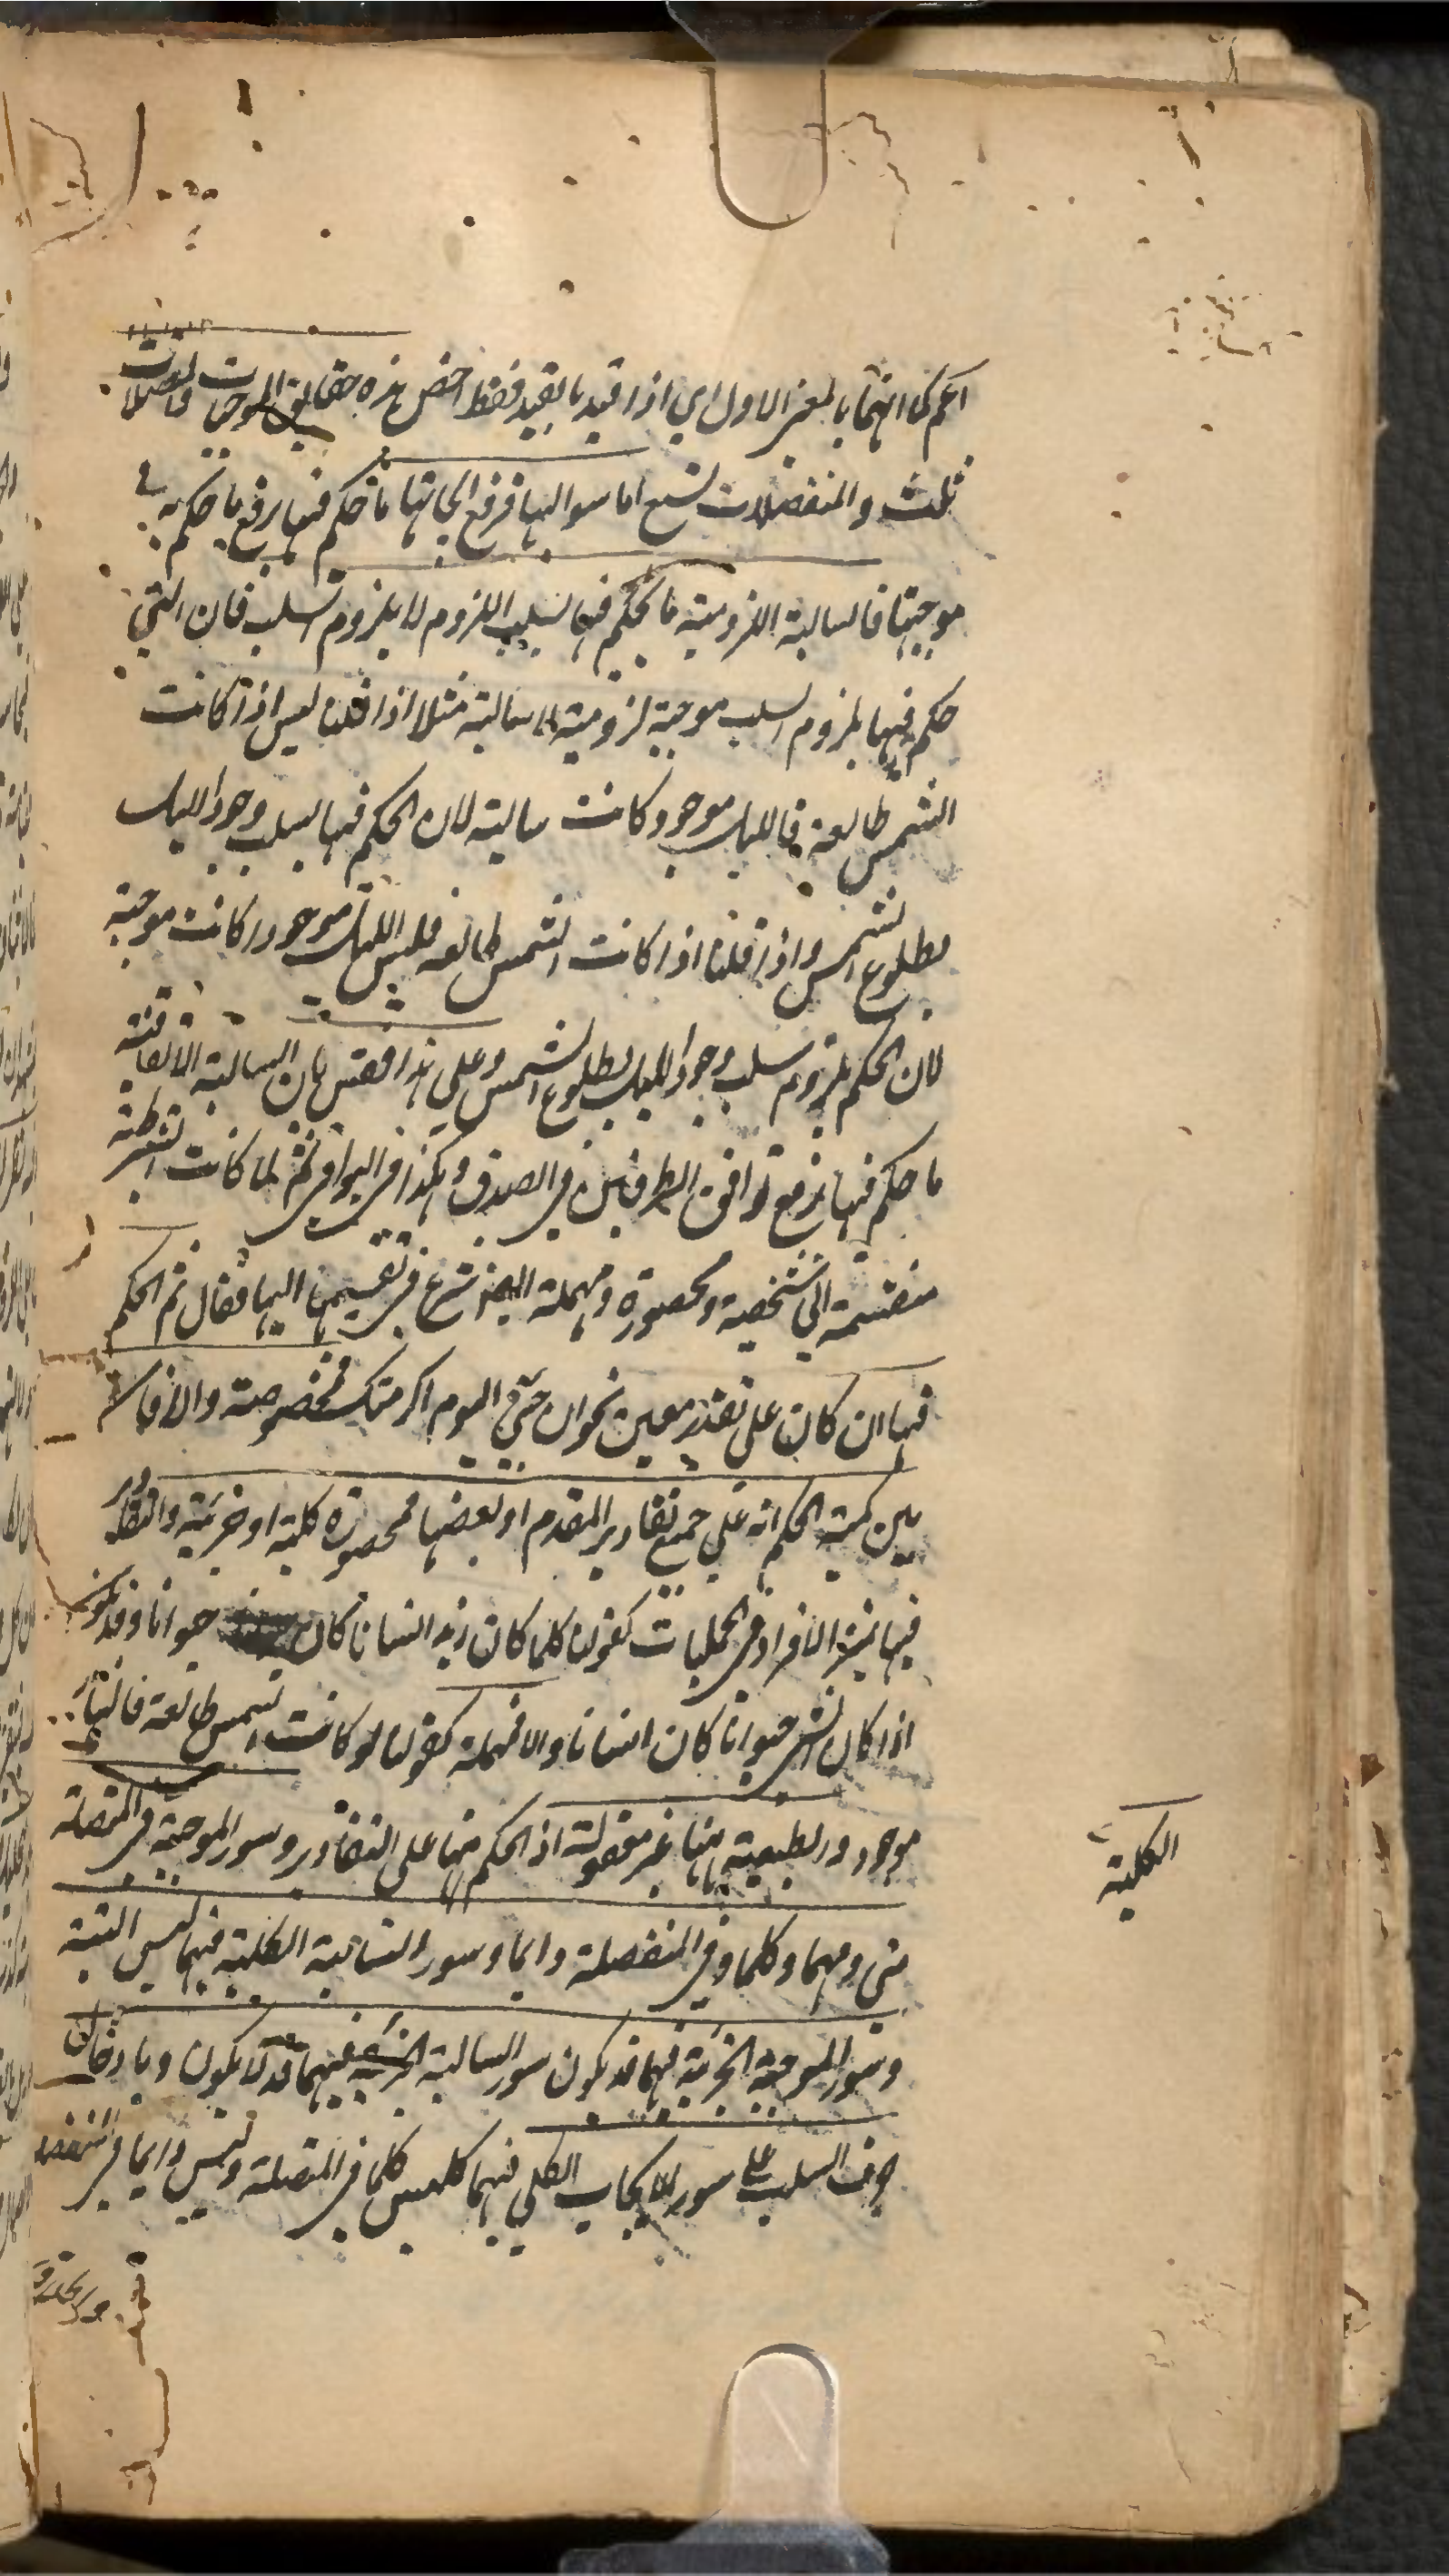 اعم كما انهما بالمعنى الاول اي اذا قيد بالقيد فقط اخص هذه حقايق الموجبات والمتصلات
ثلث والمنفصلات تسع اما سوالبها فرفع ايجابها ما حكم فيها برفع ما حكم به في
موجبتها فالسالبة اللزومية ما يحكم فيها بسلب اللزوم لا بلزوم السلب فان التي
حكم فيها بلزوم السلب موجبة لزومية لا سالبة مثلا اذا قلنا ليس اذا كانت
الشمس طالعة فالليل موجود كانت سالبة لان الحكم فيها بسلب وجود الليل
بطلوع الشمس واذا قلنا اذا كانت الشمس طالعة فليس الليل موجودا كانت موجبة
لان الحكم بلزوم سلب وجود الليل بطلوع الشمس وعلى هذا فقس فان السالبة الاتفاقية
ما حكم فيها برفع توافق الطرفين في الصدق وهكذا في البواقي ثم لما كانت الشرطية
منقسمة الى شخصية ومحصورة ومهملة ايضا شرع في تقسيمها اليها فقال ثم الحكم
فيها ان كان على تقدير معين نحو ان جئتني اليوم اكرمتك فمخصوصة والا فان
بين كمية الحكم انه على جميع تقادير المقدم او بعضها فمحصورة كلية او جزئية والتقادير
فيها بمنزلة الافراد في الحمليات كقولنا كلما كان زيد انسانا كان حيوانا وقد يكون
اذا كان الشئ حيوانا كان انسانا والا فمهملة كقولنا لو كانت الشمس طالعة فالنهار
موجود والطبيعية ههنا غير معقولة اذ الحكم فيها على التقادير وسور الموجبة في المتصلة
الكلية
متى ومهما وكلما وفي المنفصلة دايما وسور السالبة الكلية فيهما ليس البتة
وسور الموجبة الجزئية فيهما قد يكون سور السالبة الجزئية فيهما قد لا يكون وبادخال
حرف السلب على سور الايجاب الكلي فيهما كليس كلما في المتصلة وليس دايما في المنفصلة